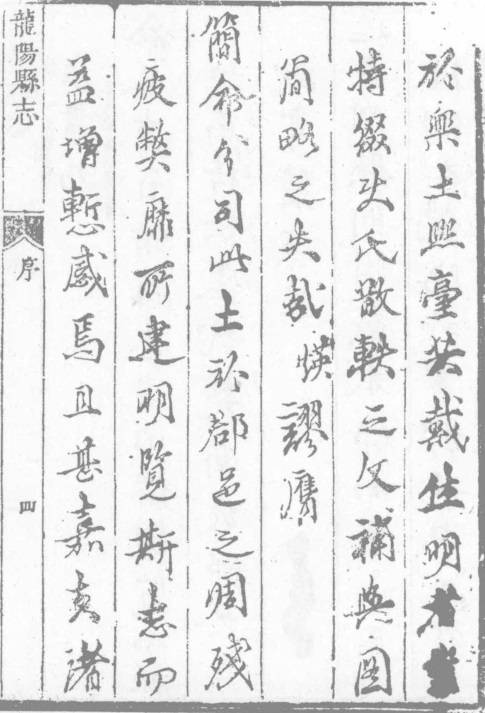 於樂土熙臺共戴明者豈
特綴史氏散軼之文補輿圖
簡略之失哉煐謬膺
簡命分司此土於郡邑之凋殘
疲獘靡所建明覽斯志而
益增慙感焉且甚嘉夫諸
龍陽縣志
序
四